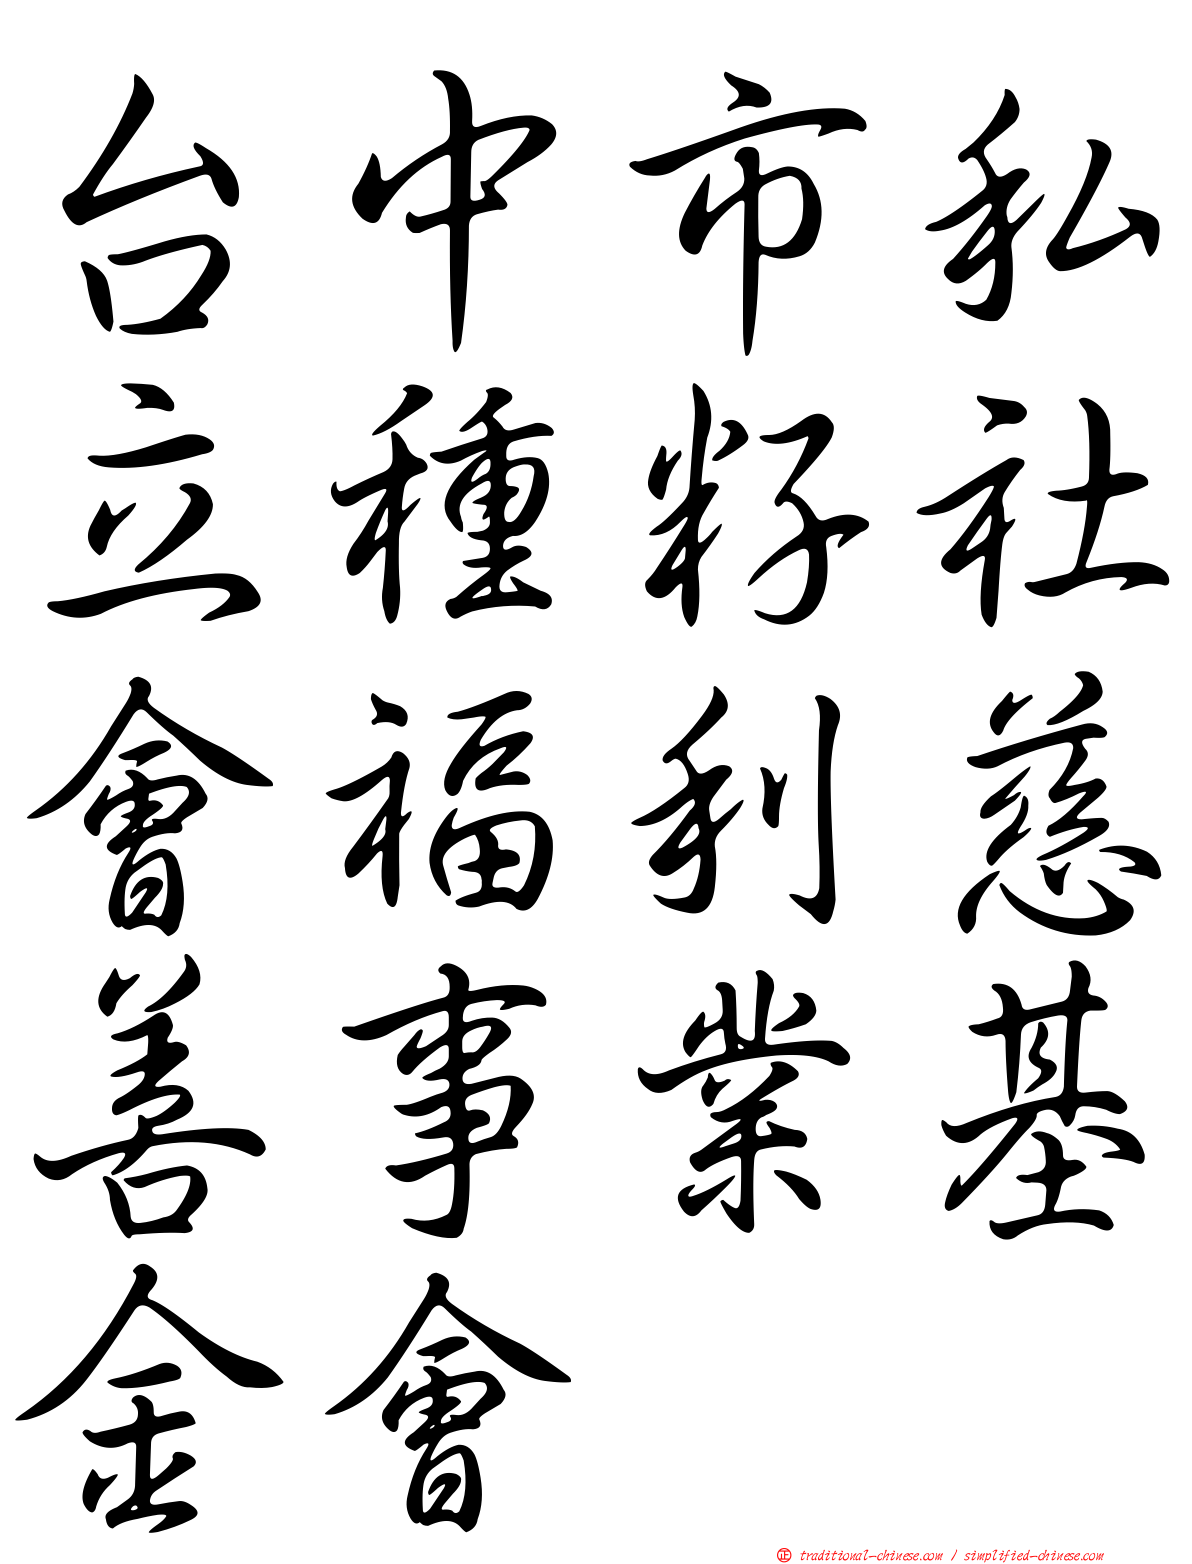 台中市私
立種籽社
會福利慈
善事業基
金會
㊣ traditional-chinese.com / simplified-chinese.com